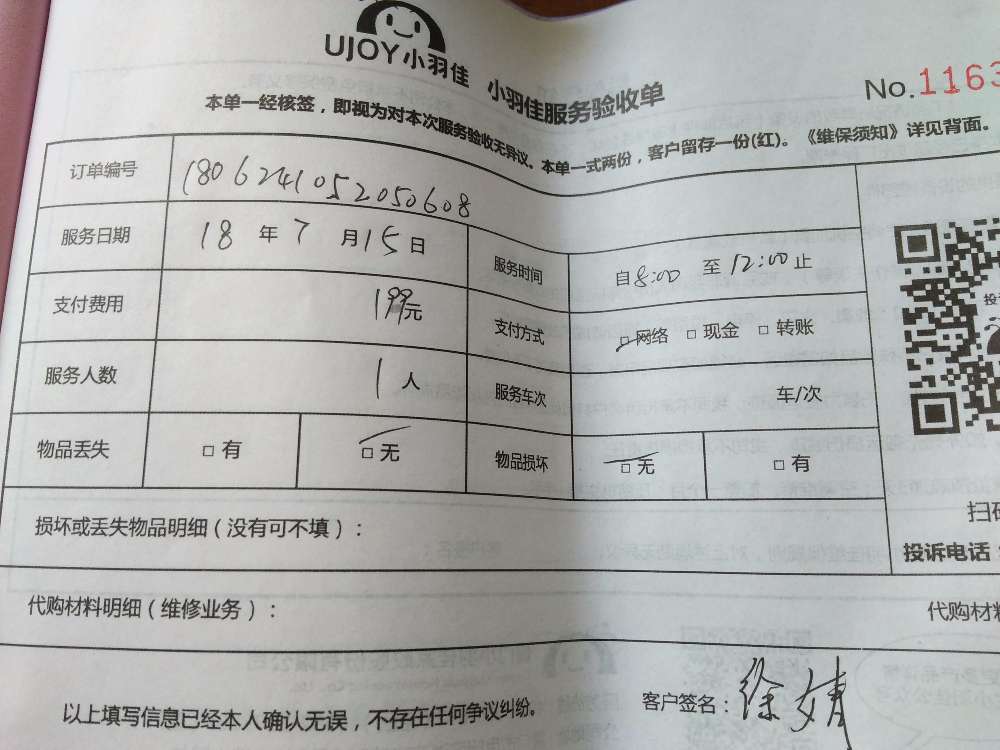 UJOY小羽佳 小羽佳服务验收单
No.1163
本单一经核签，即视为对本次服务验收无异议。本单一式两份，客户留存一份(红)。《维保须知》详见背面。
订单编号 1806241052050608
服务日期 18 年 7 月 15 日 服务时间 自8:00 至 12:00 止
支付费用 199元 支付方式 □网络 □现金 □转账
服务人数 1 人 服务车次 车/次
物品丢失 □有 □无 物品损坏 □无 □有
损坏或丢失物品明细（没有可不填）：
扫
投诉电话
代购材料明细（维修业务）： 代购材
以上填写信息已经本人确认无误，不存在任何争议纠纷。 客户签名：徐婧